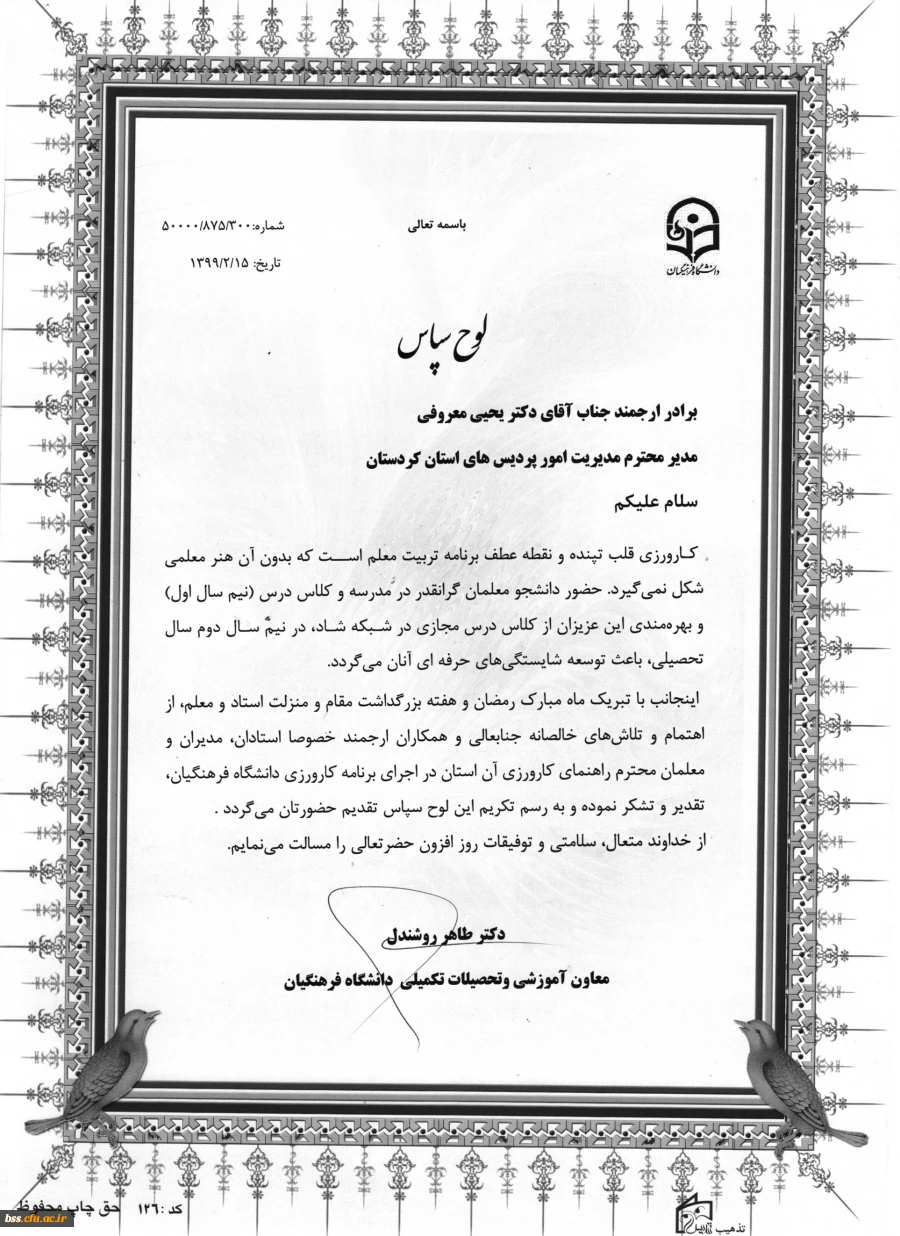 باسمه تعالی
شماره: ۵۰۰۰۰/۸۷۵/۳۰۰
تاریخ: ۱۳۹۹/۲/۱۵
دانشگاه فرهنگیان
لوح سپاس
برادر ارجمند جناب آقای دکتر یحیی معروفی
مدیر محترم مدیریت امور پردیس های استان کردستان
سلام علیکم
کارورزی قلب تپنده و نقطه عطف برنامه تربیت معلم است که بدون آن هنر معلمی
شکل نمی‌گیرد. حضور دانشجو معلمان گرانقدر در مدرسه و کلاس درس (نیم سال اول)
و بهره‌مندی این عزیزان از کلاس درس مجازی در شبکه شاد، در نیم سال دوم سال
تحصیلی، باعث توسعه شایستگی‌های حرفه ای آنان می‌گردد.
اینجانب با تبریک ماه مبارک رمضان و هفته بزرگداشت مقام و منزلت استاد و معلم، از
اهتمام و تلاش‌های خالصانه جنابعالی و همکاران ارجمند خصوصا استادان، مدیران و
معلمان محترم راهنمای کارورزی آن استان در اجرای برنامه کارورزی دانشگاه فرهنگیان،
تقدیر و تشکر نموده و به رسم تکریم این لوح سپاس تقدیم حضورتان می‌گردد .
از خداوند متعال، سلامتی و توفیقات روز افزون حضرتعالی را مسالت می‌نمایم.
دکتر طاهر روشندل
معاون آموزشی وتحصیلات تکمیلی دانشگاه فرهنگیان
تذهیب
کد : ۱۲۶ حق چاپ محفوظ
bss.cfu.ac.ir